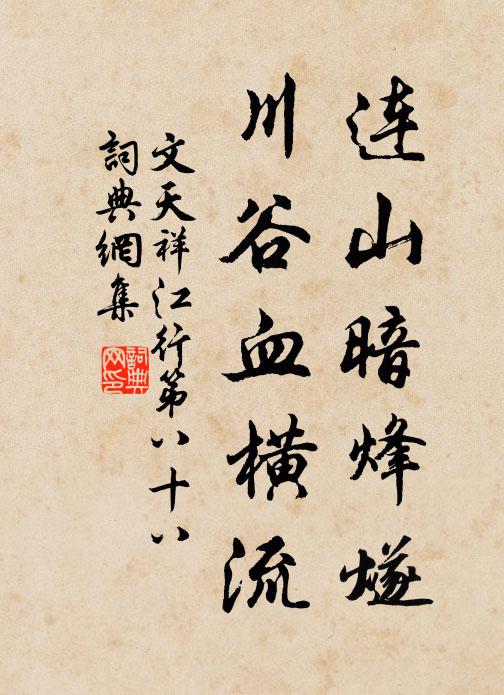 连山暗烽燧
川谷血橫流
文天祥江行第八十八
詞典網集
詞典网印